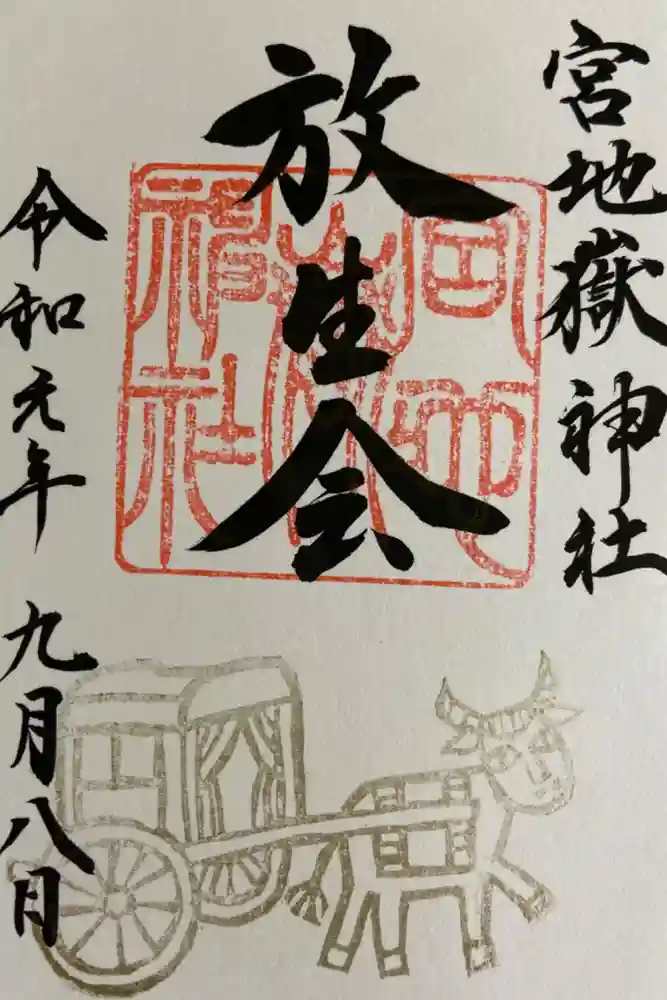 宮地嶽神社
放生会
宮地嶽神社
令和元年九月八日